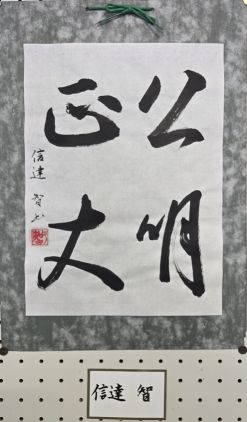 公明
正大
信達 智书
信達 智